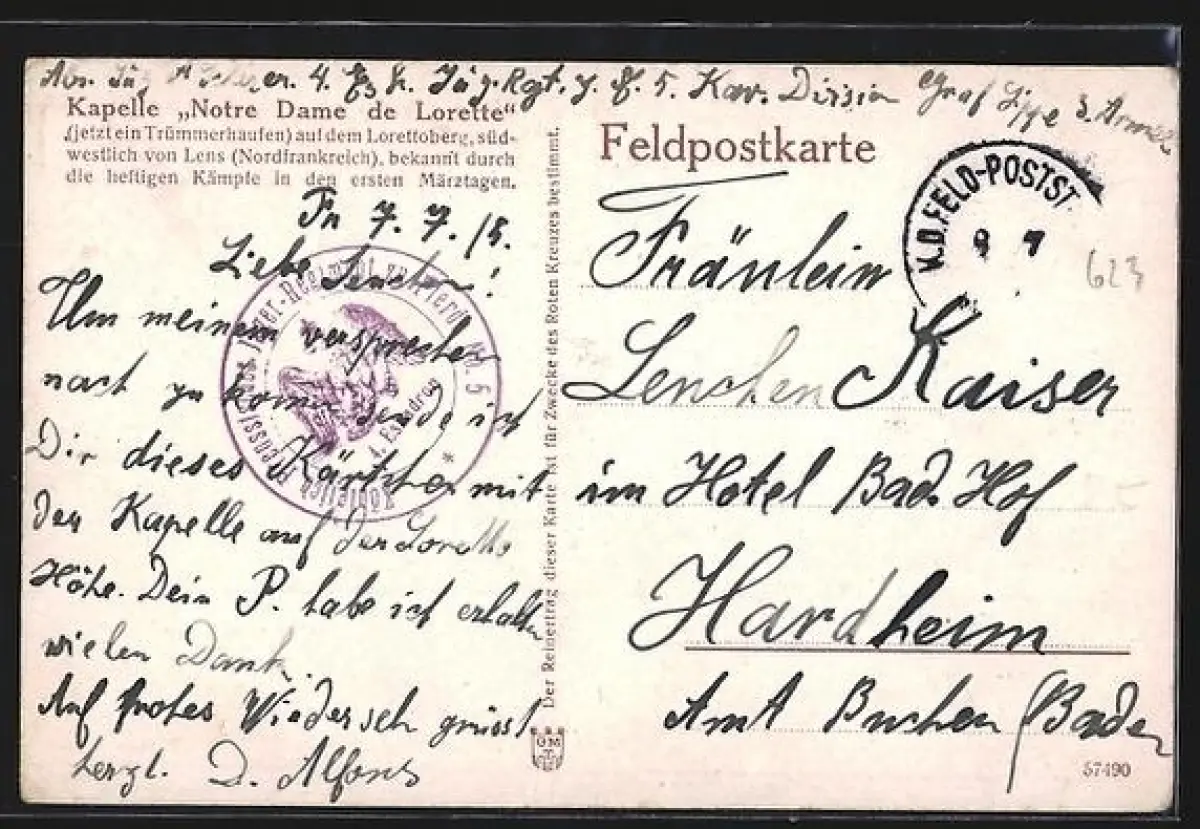 Abs. Jäg. 4. Esk. Jäg. Rgt. z. Pf. 5. Kav. Division Graf Lippe 3. Armee
Kapelle „Notre Dame de Lorette"
(jetzt ein Trümmerhaufen) auf dem Lorettoberg, süd-
westlich von Lens (Nordfrankreich), bekannt durch
die heftigen Kämpfe in den ersten Märztagen.
Fn 7. 7. 18.
Liebe Lenchen!
Um meinem versprechen
nach zu komen sende ich
Dir dieses Kärtchen mit
der Kapelle auf der Loretto
Höhe. Dein P. habe ich erhalten
vielen Dank.
Auf frohes Wiederseh grüsst
herzl. D. Alfons
Königlich Preussisches Jäger-Regiment zu Pferde No. 5
4. Eskadron
Der Reinertrag dieser Karte ist für Zwecke des Roten Kreuzes bestimmt.
GM
Feldpostkarte
K.D.FELD-POSTST.
9 7
623
Fräulein
Lenchen Kaiser
im Hotel Bad. Hof
Hardheim
Amt Buchen (Baden
57490